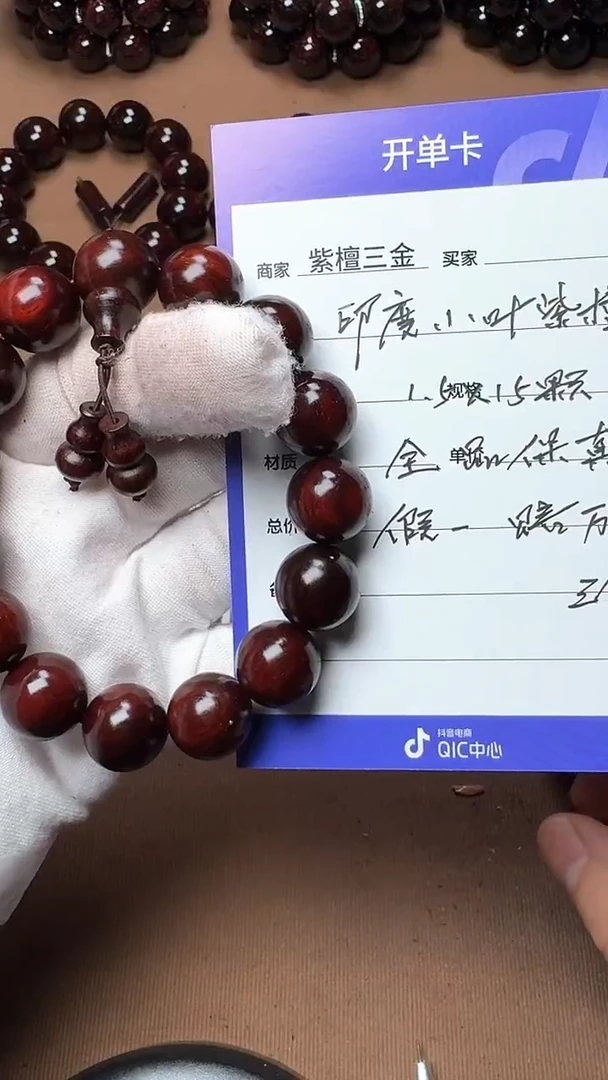 开单卡
商家 紫檀三金 买家
印度小叶紫檀
1.5规格15颗
材质 全 单 保真
总价 假一赔万
抖音电商
QIC中心